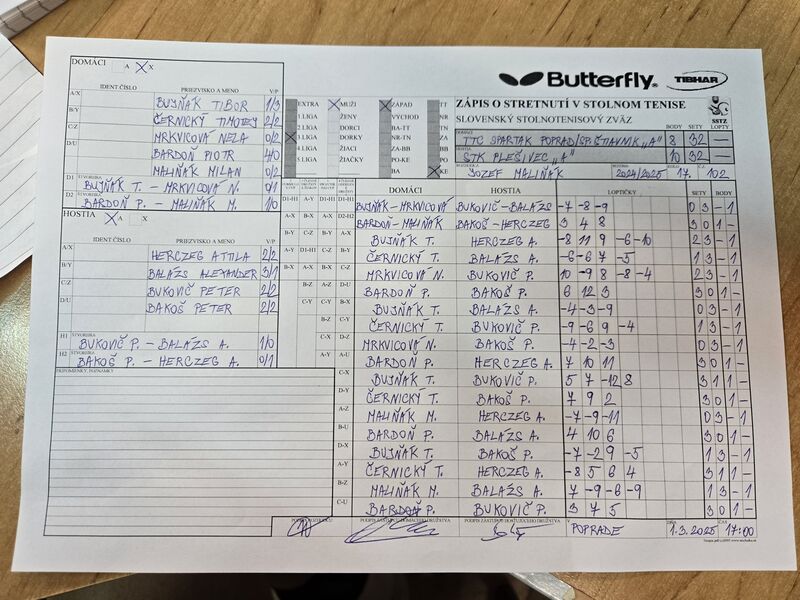 DOMÁCI A X
Butterfly. TIBHAR
IDENT ČÍSLO PRIEZVISKO A MENO V/P
A/X BUJŇÁK TIBOR 1/3
B/Y ČERNICKÝ TIMOTEJ 2/2
C/Z MRKVICOVÁ NELA 0/2
D/U BARDOŇ PIOTR 4/0
MALIŇÁK MILAN 0/2
D1 ŠTVORHRA BUJŇÁK T. - MRKVICOVÁ N. 0/1
D2 ŠTVORHRA BARDOŇ P. - MALIŇÁK M. 1/0
EXTRA MUŽI ZÁPAD TT
1 LIGA ŽENY VÝCHOD NR
2 LIGA DORCI BA-TT TN
3 LIGA DORKY NR-TN ZA
4 LIGA ŽIACI ZA-BB BB
5 LIGA ŽIAČKY PO-KE PO
BA KE
ZÁPIS O STRETNUTÍ V STOLNOM TENISE
SLOVENSKÝ STOLNOTENISOVÝ ZVÄZ
SSTZ
BODY SETY LOPTY
DOMÁCI TTC SPARTAK POPRAD/SP.ŠTIAVNIK „A" 8 32 -
HOSTIA STK PLEŠIVEC „A" 10 32 -
JOZEF MALIŇÁK 2024/2025 17. 102
HOSTIA A X
IDENT ČÍSLO PRIEZVISKO A MENO V/P
A/X HERCZEG ATTILA 2/2
B/Y BALÁZS ALEXANDER 3/1
C/Z BUKOVIČ PETER 2/2
D/U BAKOŠ PETER 2/2
H1 ŠTVORHRA BUKOVIČ P. - BALÁZS A. 1/0
H2 ŠTVORHRA BAKOŠ P. - HERCZEG A. 0/1
PRIPOMIENKY, POZNÁMKY
DOMÁCI HOSTIA LOPTIČKY SETY BODY
BUJŇÁK - MRKVICOVÁ BUKOVIČ - BALÁZS -7 -8 -9 0 3 - 1
BARDOŇ - MALIŇÁK BAKOŠ - HERCZEG 3 4 8 3 0 1 -
BUJŇÁK T. HERCZEG A. -8 11 9 -6 -10 2 3 - 1
ČERNICKÝ T. BALÁZS A. -6 -6 7 -5 1 3 - 1
MRKVICOVÁ N. BUKOVIČ P. 10 -9 8 -8 -4 2 3 - 1
BARDOŇ P. BAKOŠ P. 6 12 3 3 0 1 -
BUJŇÁK T. BALÁZS A. -4 -3 -9 0 3 - 1
ČERNICKÝ T. BUKOVIČ P. -9 -6 9 -4 1 3 - 1
MRKVICOVÁ N. BAKOŠ P. -4 -2 -3 0 3 - 1
BARDOŇ P. HERCZEG A. 7 10 11 3 0 1 -
BUJŇÁK T. BUKOVIČ P. 5 7 -12 8 3 1 1 -
ČERNICKÝ T. BAKOŠ P. 7 9 2 3 0 1 -
MALIŇÁK M. HERCZEG A. -7 -9 -11 0 3 - 1
BARDOŇ P. BALÁZS A. 4 10 6 3 0 1 -
BUJŇÁK T. BAKOŠ P. -7 -2 9 -5 1 3 - 1
ČERNICKÝ T. HERCZEG A. -8 5 6 4 3 1 1 -
MALIŇÁK M. BALÁZS A. 7 -9 -6 -9 1 3 - 1
BARDOŇ P. BUKOVIČ P. 3 7 5 3 0 1 -
PODPIS ZÁSTUPCU DOMÁCEHO DRUŽSTVA PODPIS ZÁSTUPCU HOSŤUJÚCEHO DRUŽSTVA V POPRADE DŇA 1.3.2025 ČAS 17:00